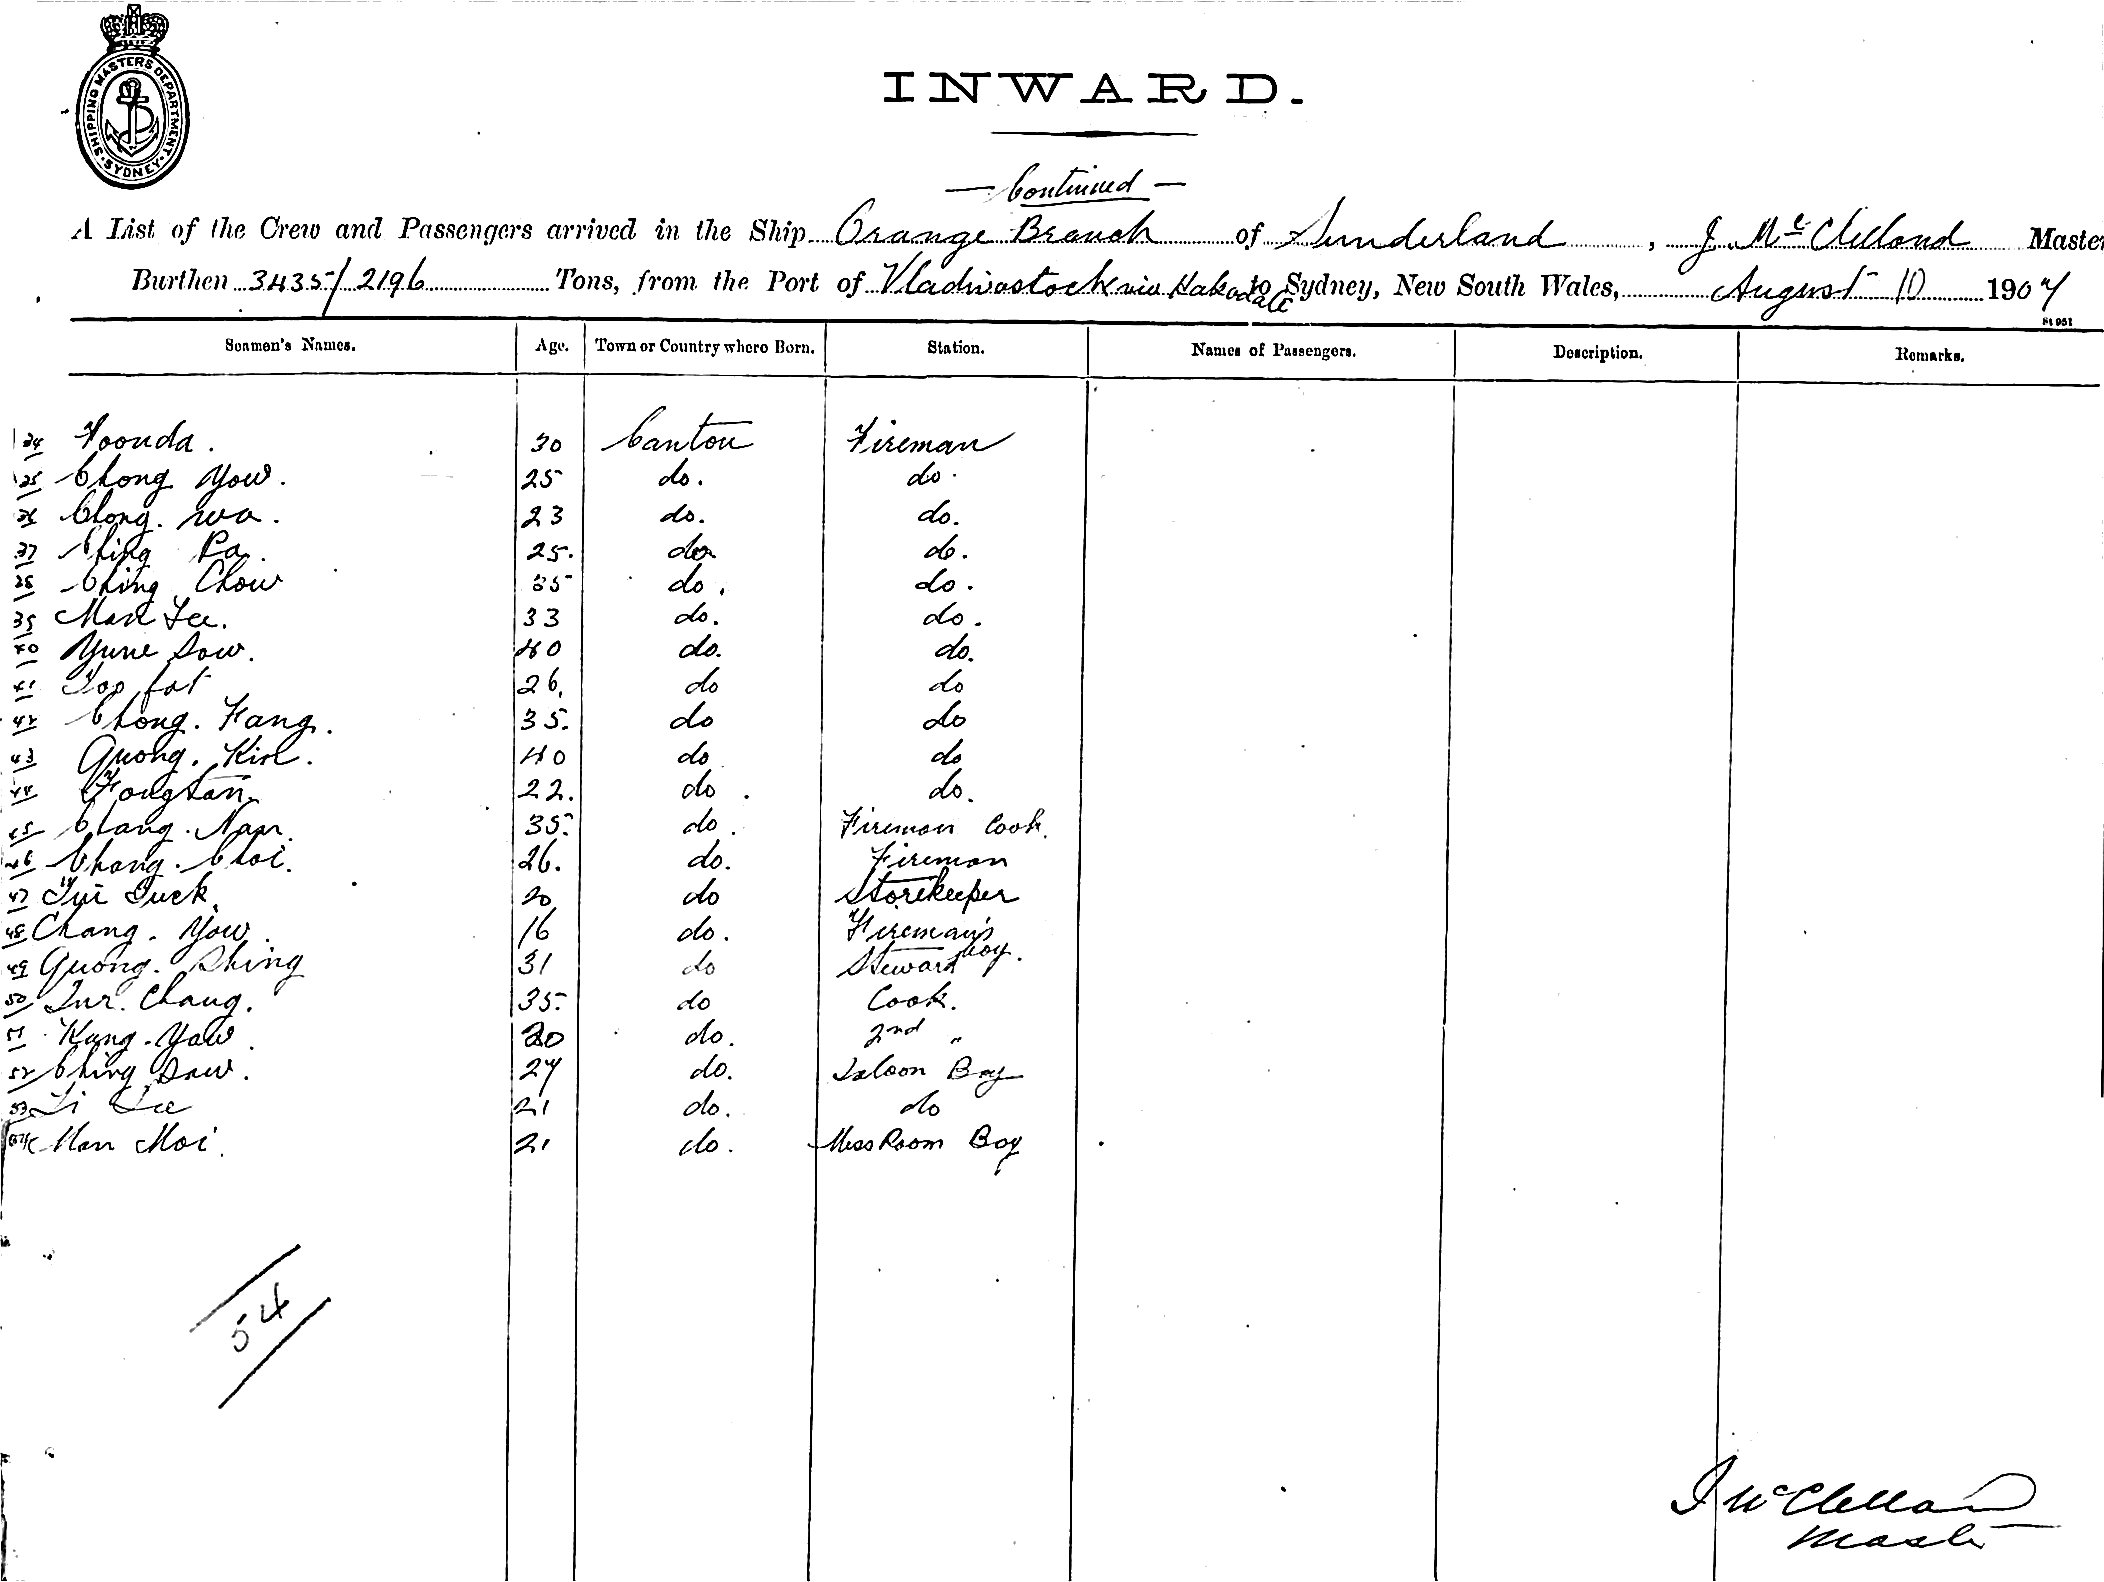 SHIPPING MASTERS DEPARTMENT. SYDNEY.
INWARD.
— Continued —
A List of the Crew and Passengers arrived in the Ship Orange Branch of Sunderland, J. McClelland Master
Burthen 3435/2196 Tons, from the Port of Vladivostock via to Sydney, New South Wales, August 10 1907
Seamen's Names. Age. Town or Country where Born. Station. Names of Passengers. Description. Remarks.
34 Foonda. 30 Canton Fireman
35 Chong Yow. 25 do. do.
36 Chong. Wa. 23 do. do.
37 Ching Pa. 25. do do.
38 Ching Chow 35 do. do.
39 Man Lee. 33 do. do.
40 Yune Sow. 40 do. do.
41 fat 26. do do
42 Chong. Fang. 35. do do
43 Quong. Kin. 40 do do
44 Fongtan. 22. do. do.
45 Chang. Nam. 35. do. Fireman Cook.
46 Chang. Choi. 26. do. Fireman
47 Suck. 20 do Storekeeper
48 Chang. Yow. 16 do. Fireman's boy.
49 Quong. Shing 31 do Steward
50 Chang. 35. do Cook.
51 Kung. Yaw. 20 do. 2nd "
52 Ching Saw. 27 do. Saloon Boy
53 Li Lee 21 do. do
54 Man Moi. 21 do. Mess Room Boy
54
J McClelland
Master